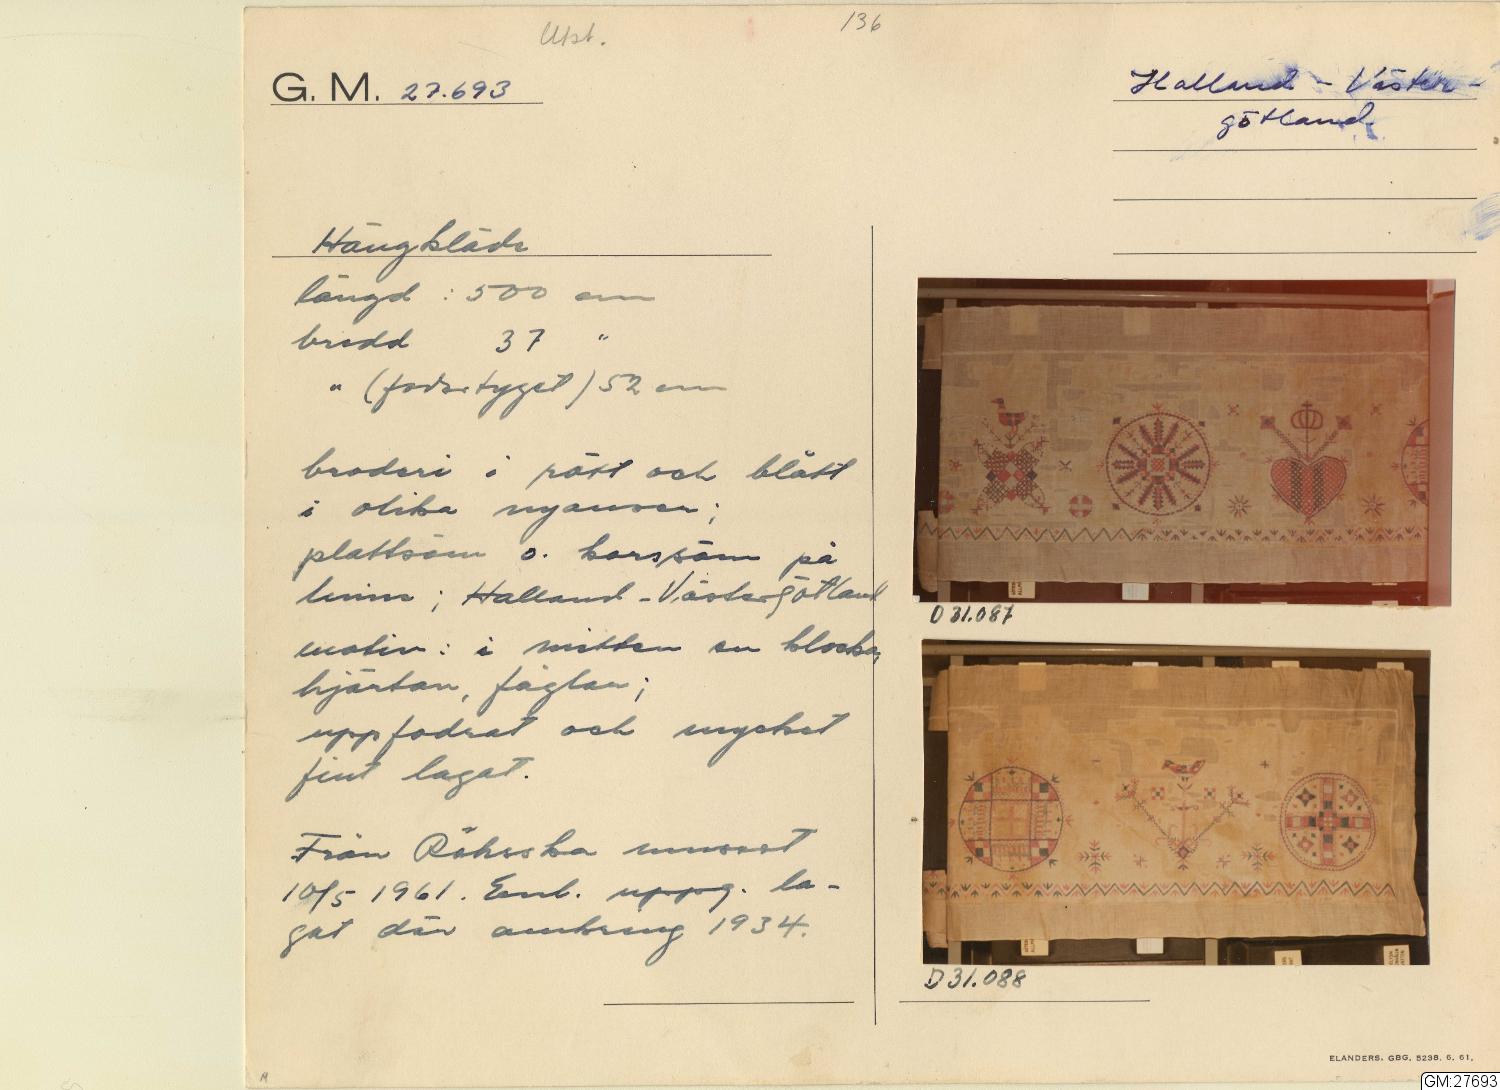 Utst.
136
G. M. 27.693
Halland - Väster-
götland
Hängkläde
längd : 500 cm
bredd 37 "
" (fodertyget) 52 cm
broderi i rött och blått
i olika nyanser;
plattsöm o. korssöm på
linne ; Halland - Västergötland
motiv : i mitten en klocka,
hjärtan, fåglar;
uppfodrat och mycket
fint lagat.
Från Röhsska museet
10/5 1961. Enl. uppg. la-
gat där omkring 1934.
D 31.087
D 31.088
ELANDERS, GBG, 5238. 6. 61.
GM:27693